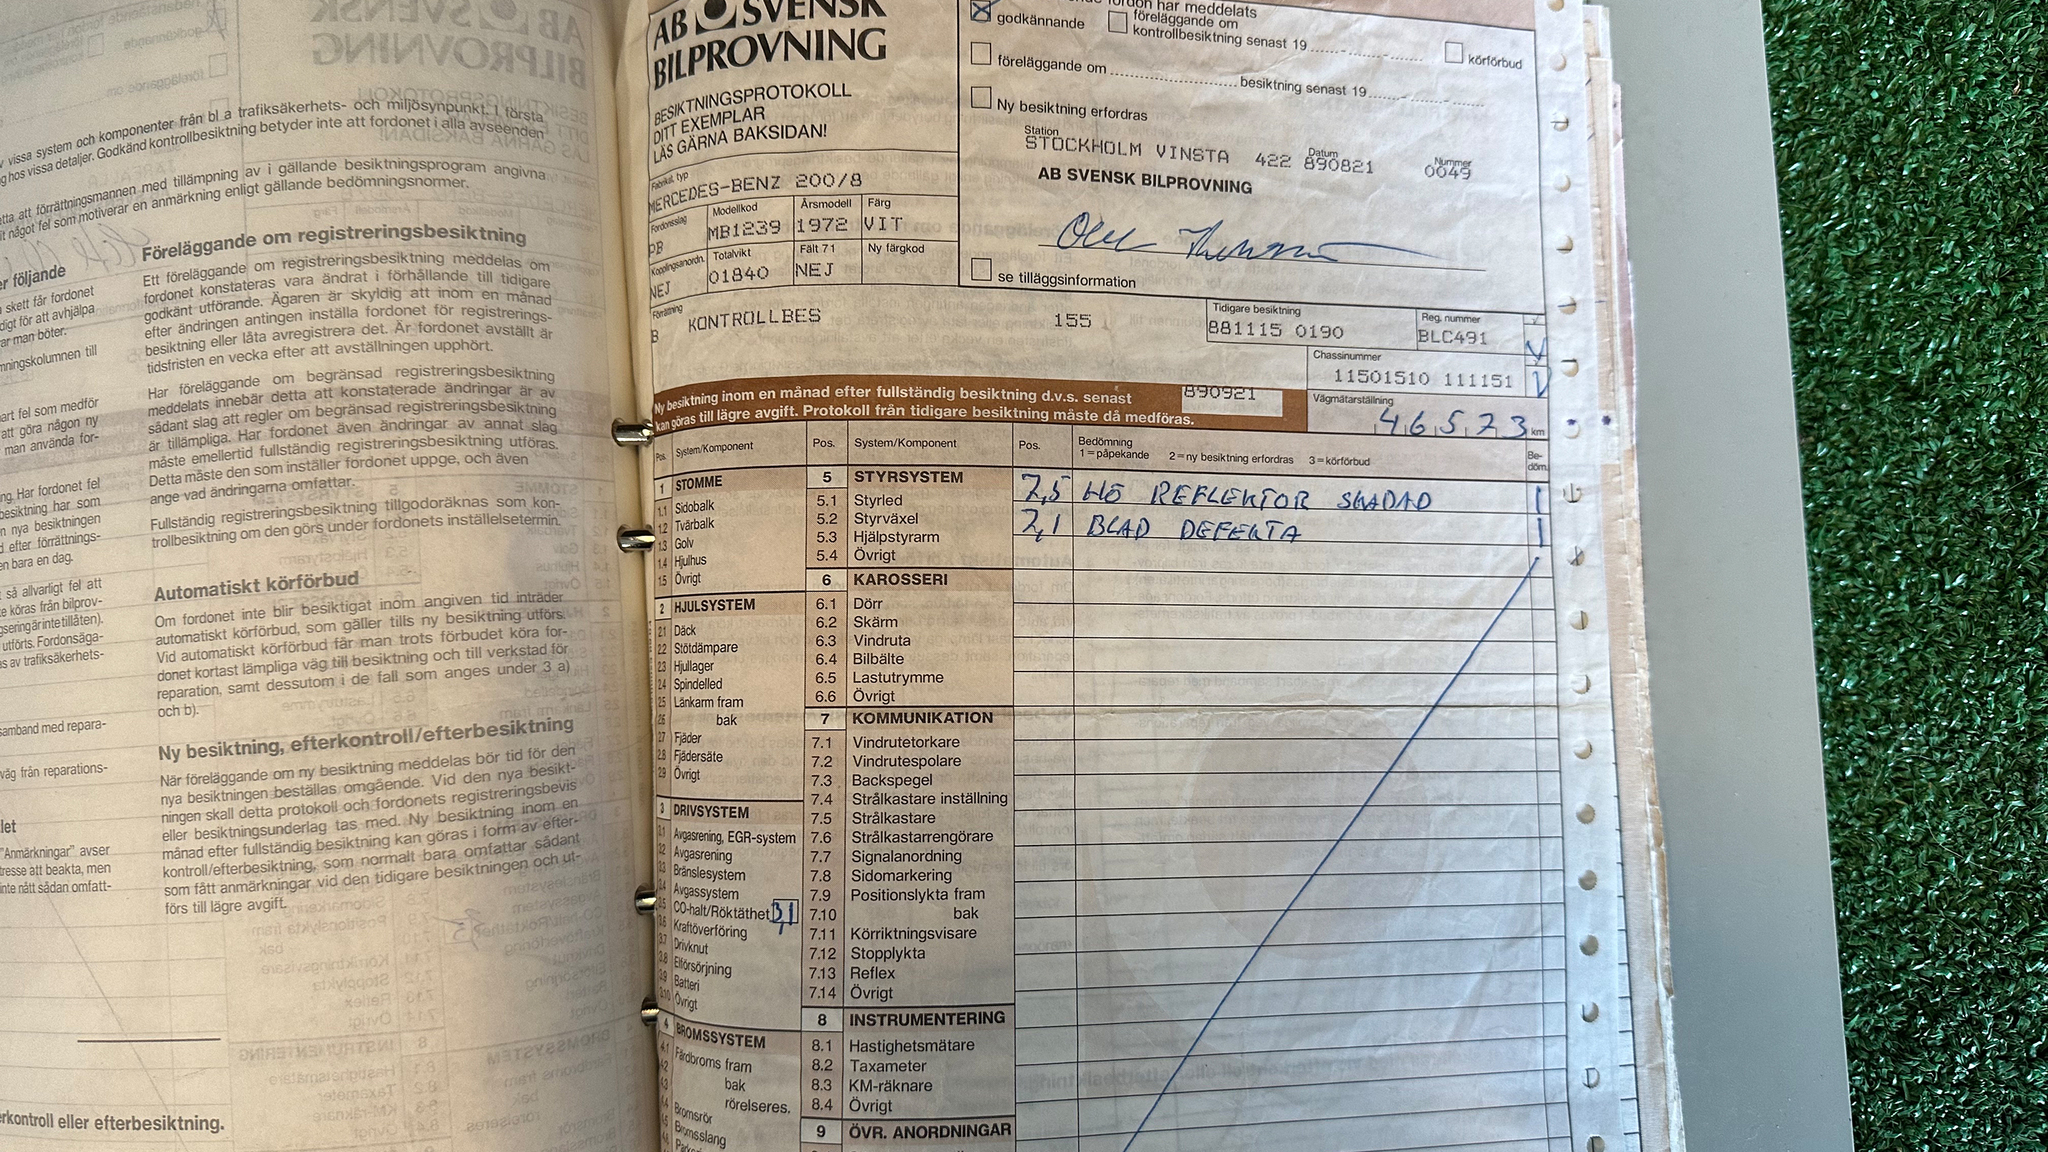 vissa system och komponenter från bl a trafiksäkerhets- och miljösynpunkt. I första
hos vissa detaljer. Godkänd kontrollbesiktning betyder inte att fordonet i alla avseenden
att förrättningsmannen med tillämpning av i gällande besiktningsprogram angivna
något fel som motiverar en anmärkning enligt gällande bedömningsnormer.
följande
skett får fordonet
digt för att avhjälpa
man böter.
ningskolumnen till
fel som medför
att göra någon ny
man använda for-
Har fordonet fel
besiktning har som
nya besiktningen
efter förrättnings-
bara en dag.
så allvarligt fel att
köras från bilprov-
är inte tillåten).
utförts. Fordonsäga-
av trafiksäkerhets-
samband med repara-
väg från reparations-
"Anmärkningar" avser
att beakta, men
inte nått sådan omfatt-
eller efterbesiktning.
Föreläggande om registreringsbesiktning
Ett föreläggande om registreringsbesiktning meddelas om
fordonet konstateras vara ändrat i förhållande till tidigare
godkänt utförande. Ägaren är skyldig att inom en månad
efter ändringen antingen inställa fordonet för registrerings-
besiktning eller låta avregistrera det. Är fordonet avställt är
tidsfristen en vecka efter att avställningen upphört.
Har föreläggande om begränsad registreringsbesiktning
meddelats innebär detta att konstaterade ändringar är av
sådant slag att regler om begränsad registreringsbesiktning
är tillämpliga. Har fordonet även ändringar av annat slag
måste emellertid fullständig registreringsbesiktning utföras.
Detta måste den som inställer fordonet uppge, och även
ange vad ändringarna omfattar.
Fullständig registreringsbesiktning tillgodoräknas som kon-
trollbesiktning om den görs under fordonets inställelsetermin.
Automatiskt körförbud
Om fordonet inte blir besiktigat inom angiven tid inträder
automatiskt körförbud, som gäller tills ny besiktning utförs.
Vid automatiskt körförbud får man trots förbudet köra for-
donet kortast lämpliga väg till besiktning och till verkstad för
reparation, samt dessutom i de fall som anges under 3 a)
och b).
Ny besiktning, efterkontroll/efterbesiktning
När föreläggande om ny besiktning meddelas bör tid för den
nya besiktningen beställas omgående. Vid den nya besikt-
ningen skall detta protokoll och fordonets registreringsbevis
eller besiktningsunderlag tas med. Ny besiktning inom en
månad efter fullständig besiktning kan göras i form av efter-
kontroll/efterbesiktning, som normalt bara omfattar sådant
som fått anmärkningar vid den tidigare besiktningen och ut-
förs till lägre avgift.
AB SVENSK
BILPROVNING
BESIKTNINGSPROTOKOLL
DITT EXEMPLAR
LÄS GÄRNA BAKSIDAN!
fordon har meddelats
godkännande
föreläggande om
kontrollbesiktning senast 19
körförbud
föreläggande om besiktning senast 19
Ny besiktning erfordras
Station Datum Nummer
STOCKHOLM VINSTA 422 890821 0049
AB SVENSK BILPROVNING
se tilläggsinformation
Fabrikat, typ
MERCEDES-BENZ 200/8
Fordonsslag Modellkod Årsmodell Färg
PB MB1239 1972 VIT
Kopplingsanordn. Totalvikt Fält 71 Ny färgkod
NEJ 01840 NEJ
Förrättning
B KONTROLLBES 155
Tidigare besiktning Reg. nummer
881115 0190 BLC491
Chassinummer
11501510 111151
Vägmätarställning
46573 km
Ny besiktning inom en månad efter fullständig besiktning d.v.s. senast 890921
kan göras till lägre avgift. Protokoll från tidigare besiktning måste då medföras.
Pos. System/Komponent Pos. System/Komponent Pos. Bedömning Be-
1=påpekande 2=ny besiktning erfordras 3=körförbud döm.
1 STOMME
1.1 Sidobalk
1.2 Tvärbalk
1.3 Golv
1.4 Hjulhus
1.5 Övrigt
2 HJULSYSTEM
2.1 Däck
2.2 Stötdämpare
2.3 Hjullager
2.4 Spindelled
2.5 Länkarm fram
2.6 bak
2.7 Fjäder
2.8 Fjädersäte
2.9 Övrigt
3 DRIVSYSTEM
3.1 Avgasrening, EGR-system
3.2 Avgasrening
3.3 Bränslesystem
3.4 Avgassystem
3.5 CO-halt/Röktäthet 3,1
3.6 Kraftöverföring
3.7 Drivknut
3.8 Elförsörjning
3.9 Batteri
3.10 Övrigt
4 BROMSSYSTEM
4.1 Färdbroms fram
4.2 bak
4.3 rörelseres.
4.4 Bromsrör
4.5 Bromsslang
5 STYRSYSTEM
5.1 Styrled
5.2 Styrväxel
5.3 Hjälpstyrarm
5.4 Övrigt
6 KAROSSERI
6.1 Dörr
6.2 Skärm
6.3 Vindruta
6.4 Bilbälte
6.5 Lastutrymme
6.6 Övrigt
7 KOMMUNIKATION
7.1 Vindrutetorkare
7.2 Vindrutespolare
7.3 Backspegel
7.4 Strålkastare inställning
7.5 Strålkastare
7.6 Strålkastarrengörare
7.7 Signalanordning
7.8 Sidomarkering
7.9 Positionslykta fram
7.10 bak
7.11 Körriktningsvisare
7.12 Stopplykta
7.13 Reflex
7.14 Övrigt
8 INSTRUMENTERING
8.1 Hastighetsmätare
8.2 Taxameter
8.3 KM-räknare
8.4 Övrigt
9 ÖVR. ANORDNINGAR
7,5 HÖ REFLEKTOR SKADAD 1
7,1 BLAD DEFEKTA 1